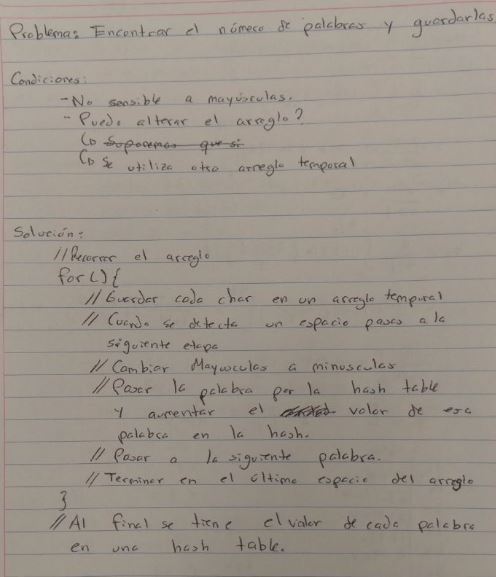 Problema: Encontrar el número de palabras y guardarlas
Condiciones:
- No sensible a mayúsculas.
- Puedo alterar el arreglo?
↳ Suponemos que si
↳ Se utiliza otro arreglo temporal
Solución:
// Recorrer el arreglo
for(){
// Guardar cada char en un arreglo temporal
// Cuando se detecta un espacio pasas a la
siguiente etapa
// Cambiar Mayusculas a minusculas
// Pasar la palabra por la hash table
y aumentar el valor de esa
palabra en la hash.
// Pasar a la siguiente palabra.
// Terminar en el último espacio del arreglo
}
// Al final se tiene el valor de cada palabra
en una hash table.